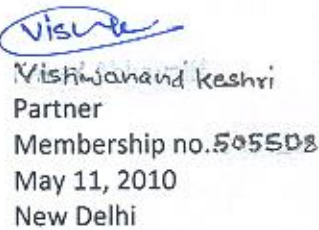 Vishwanand Keshri
Partner
Membership no.505508
May 11, 2010
New Delhi